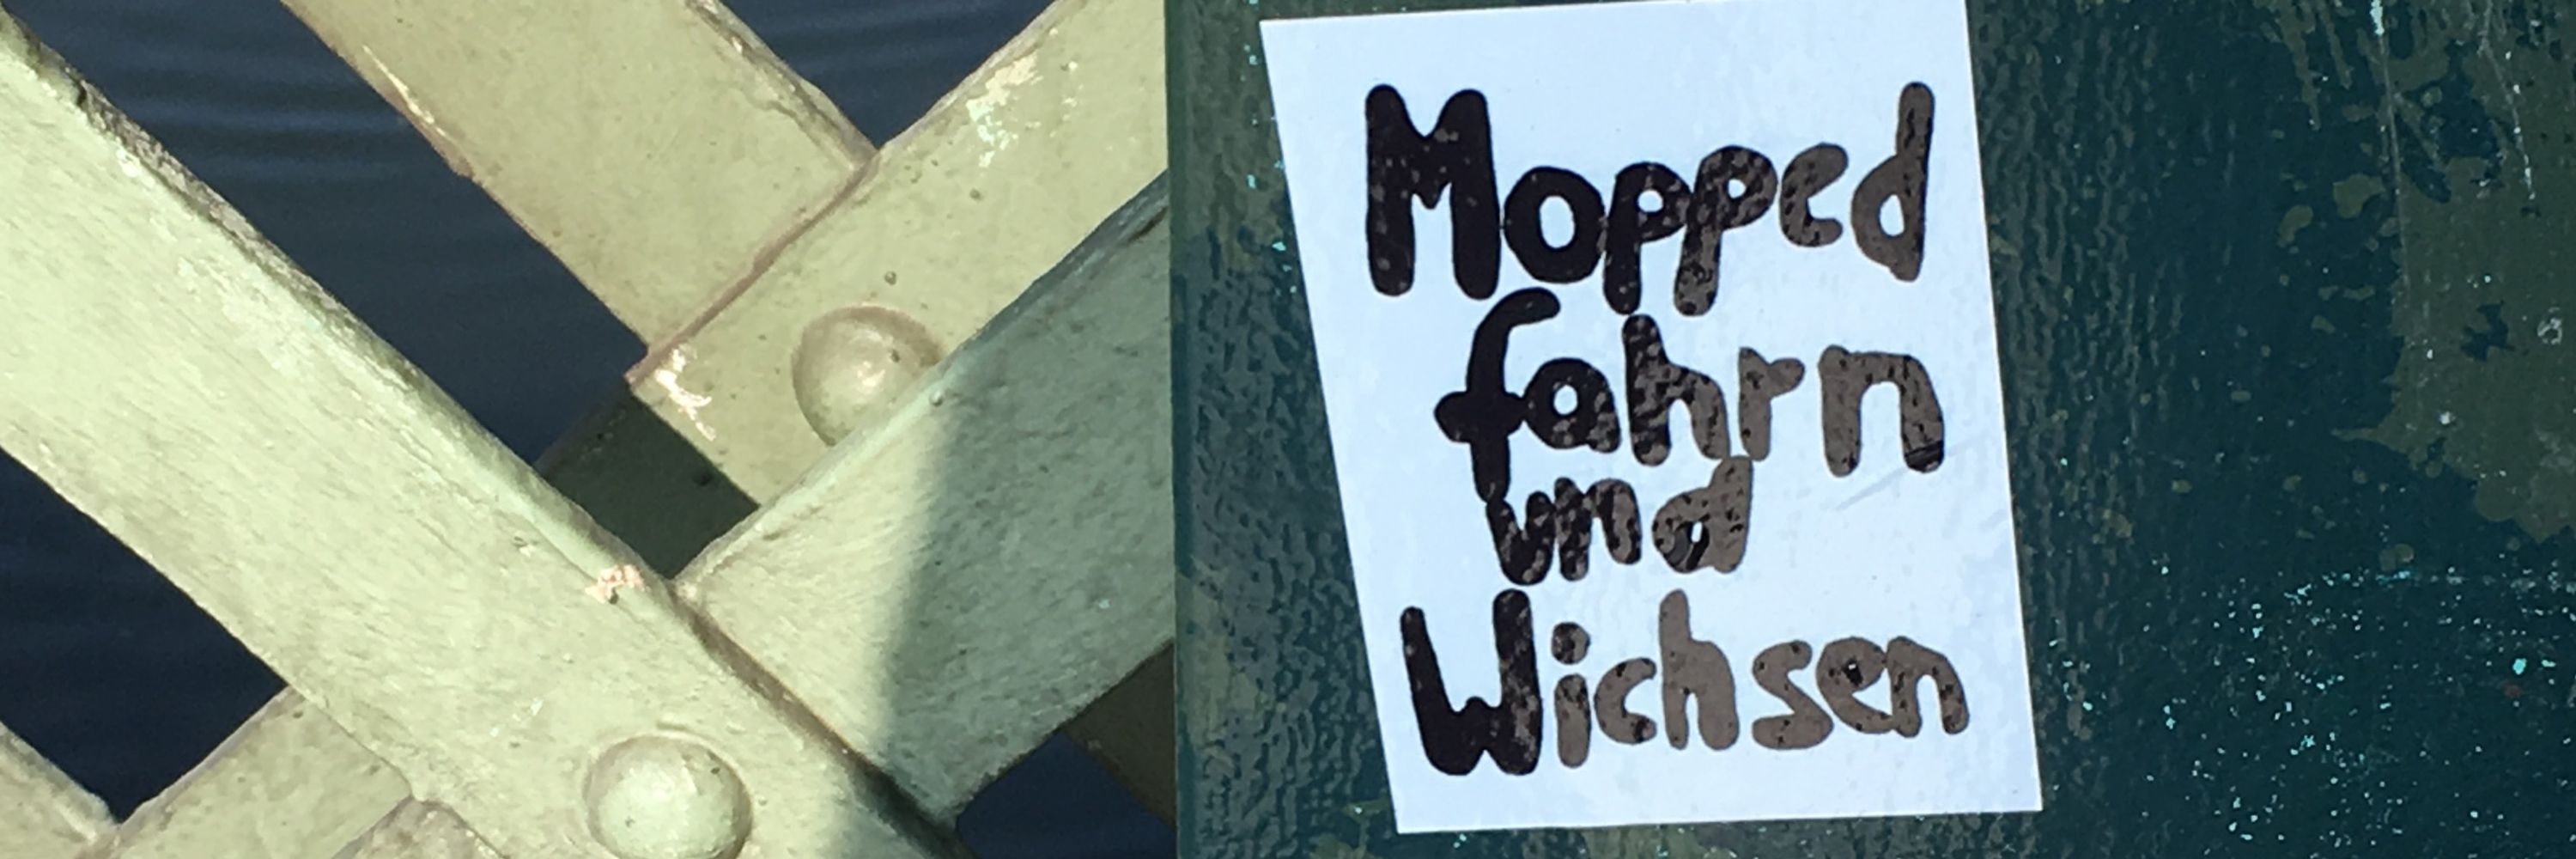 Mopped
fahrn
und
Wichsen